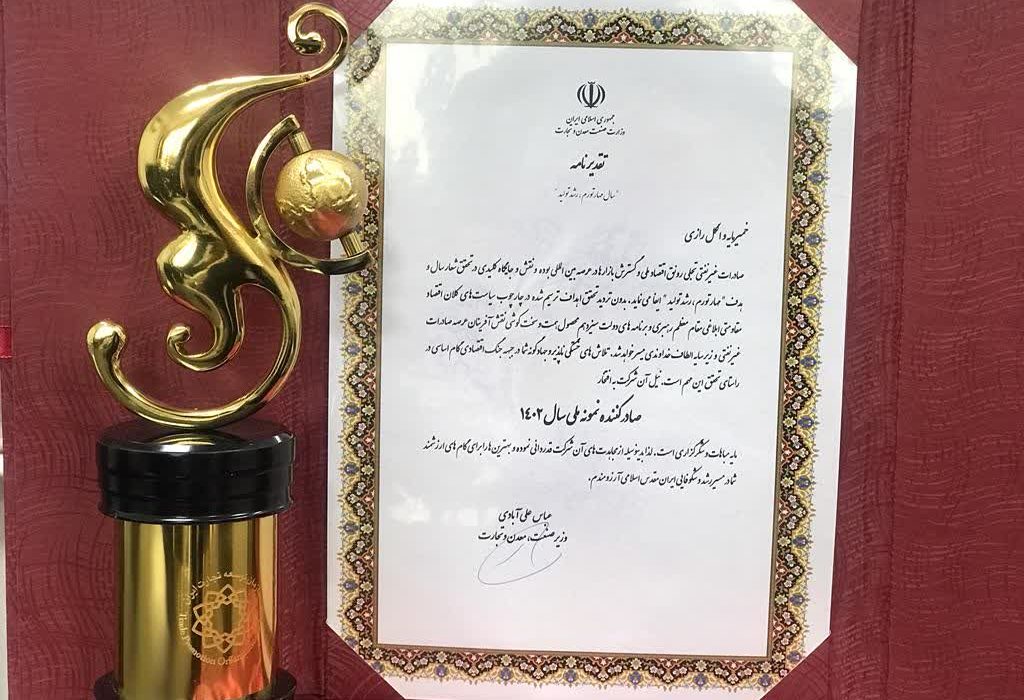 جمهوری اسلامی ایران
وزارت صنعت معدن و تجارت
تقدیرنامه
"سال مهار تورم، رشد تولید"
خمیرمایه و الکل رازی
صادرات غیرنفتی تجلی رونق اقتصاد ملی و گسترش بازارها در عرصه بین المللی بوده و نقش و جایگاه کلیدی در تحقق شعار سال و
هدف "مهار تورم، رشد تولید" ایفا می نماید. بدون تردید تحقق اهداف ترسیم شده در چارچوب سیاست های کلان اقتصاد
مقاومتی ابلاغی مقام معظم رهبری و برنامه های دولت سیزدهم محصول همت و سخت کوشی نقش آفرینان عرصه صادرات
غیرنفتی و زیر سایه الطاف خداوندی میسر خواهد شد. تلاش های خستگی ناپذیر و جهادگونه شما در جبهه جنگ اقتصادی گام اساسی در
راستای تحقق این مهم است. نیل آن شرکت به افتخار
صادرکننده نمونه ملی سال ۱۴۰۲
مایه مباهات و شکرگزاری است. لذا بدینوسیله از مجاهدت های آن شرکت قدردانی نموده و بهترین ها را برای گام های ارزشمند
شما در مسیر رشد و شکوفایی ایران مقدس اسلامی آرزومندم.
عباس علی آبادی
وزیر صنعت، معدن و تجارت
توسعه تجارت ایران
Trade Promotion